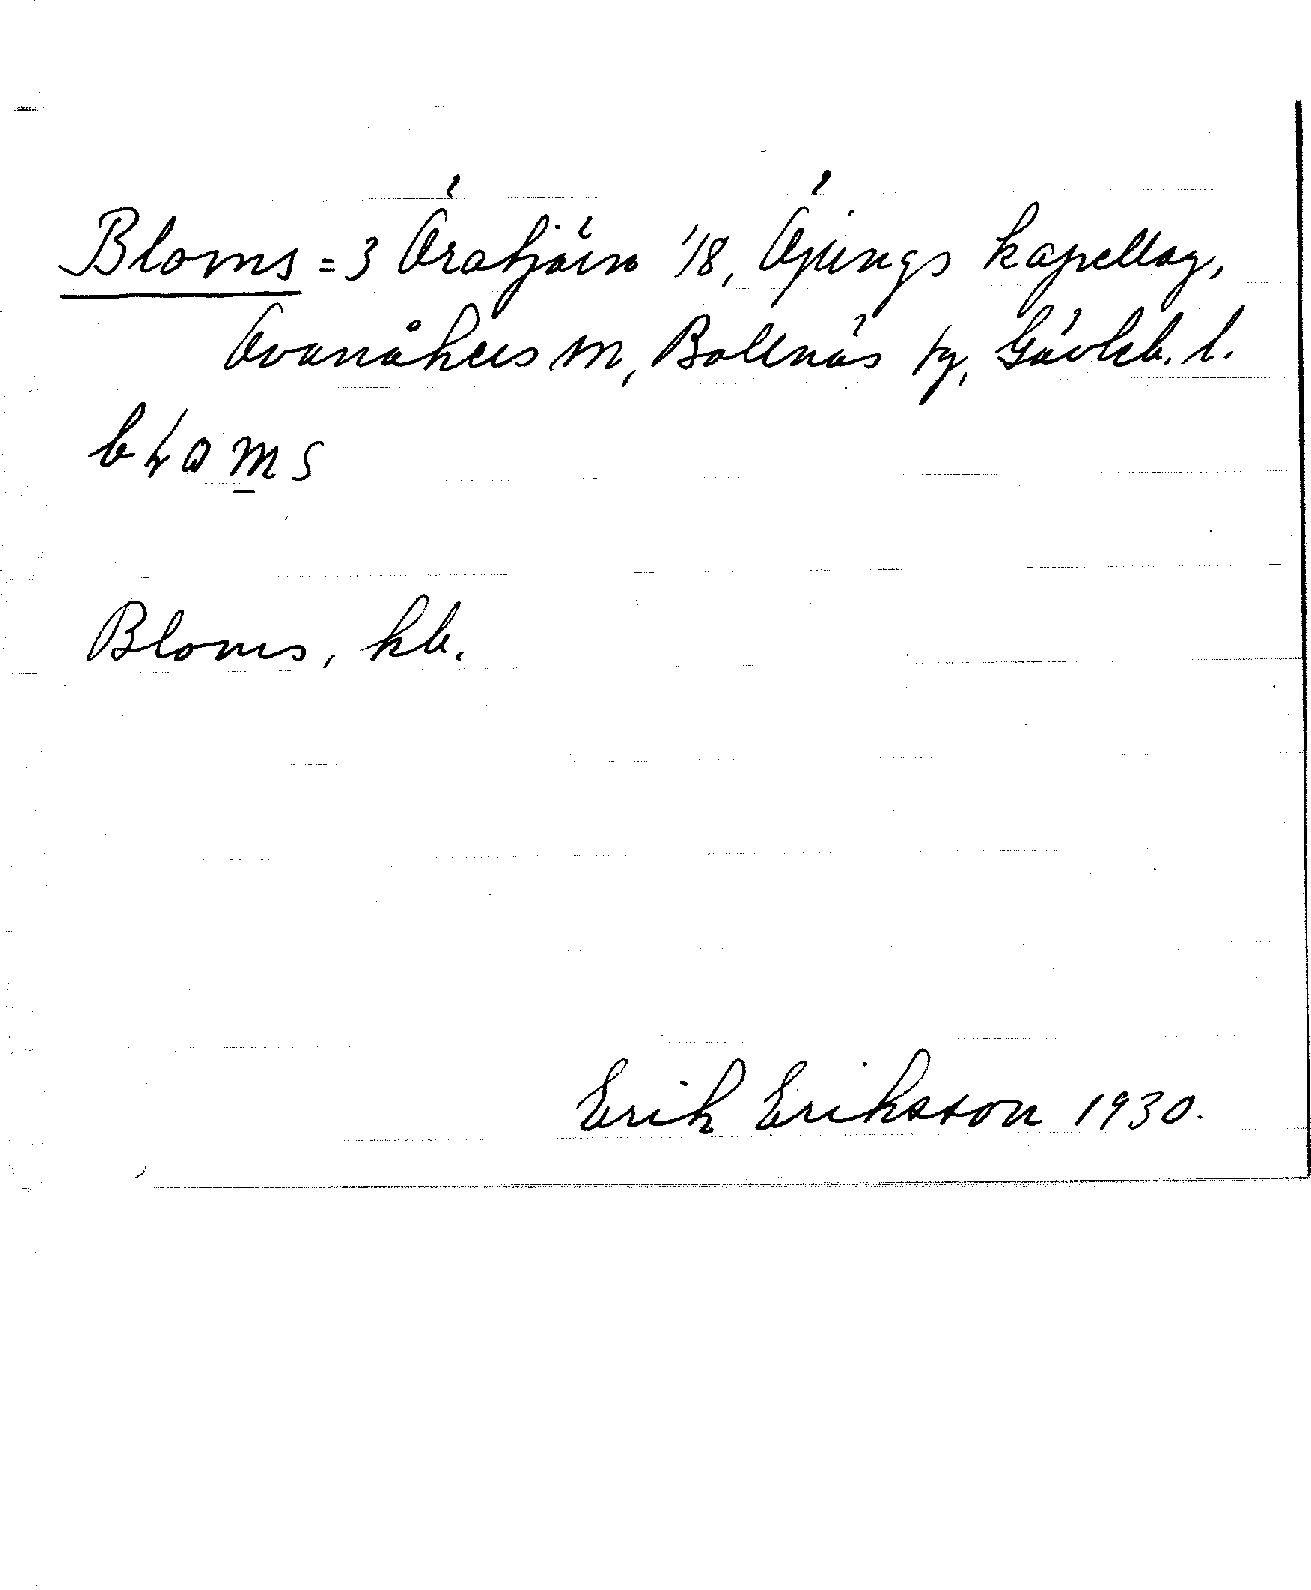 Bloms = 3 Öratjärn 1/8, Öjungs kapellag,
Ovanåkers sn, Bollnäs tg, Gävleb. l.
Bloms, kb.
Erik Eriksson 1930.